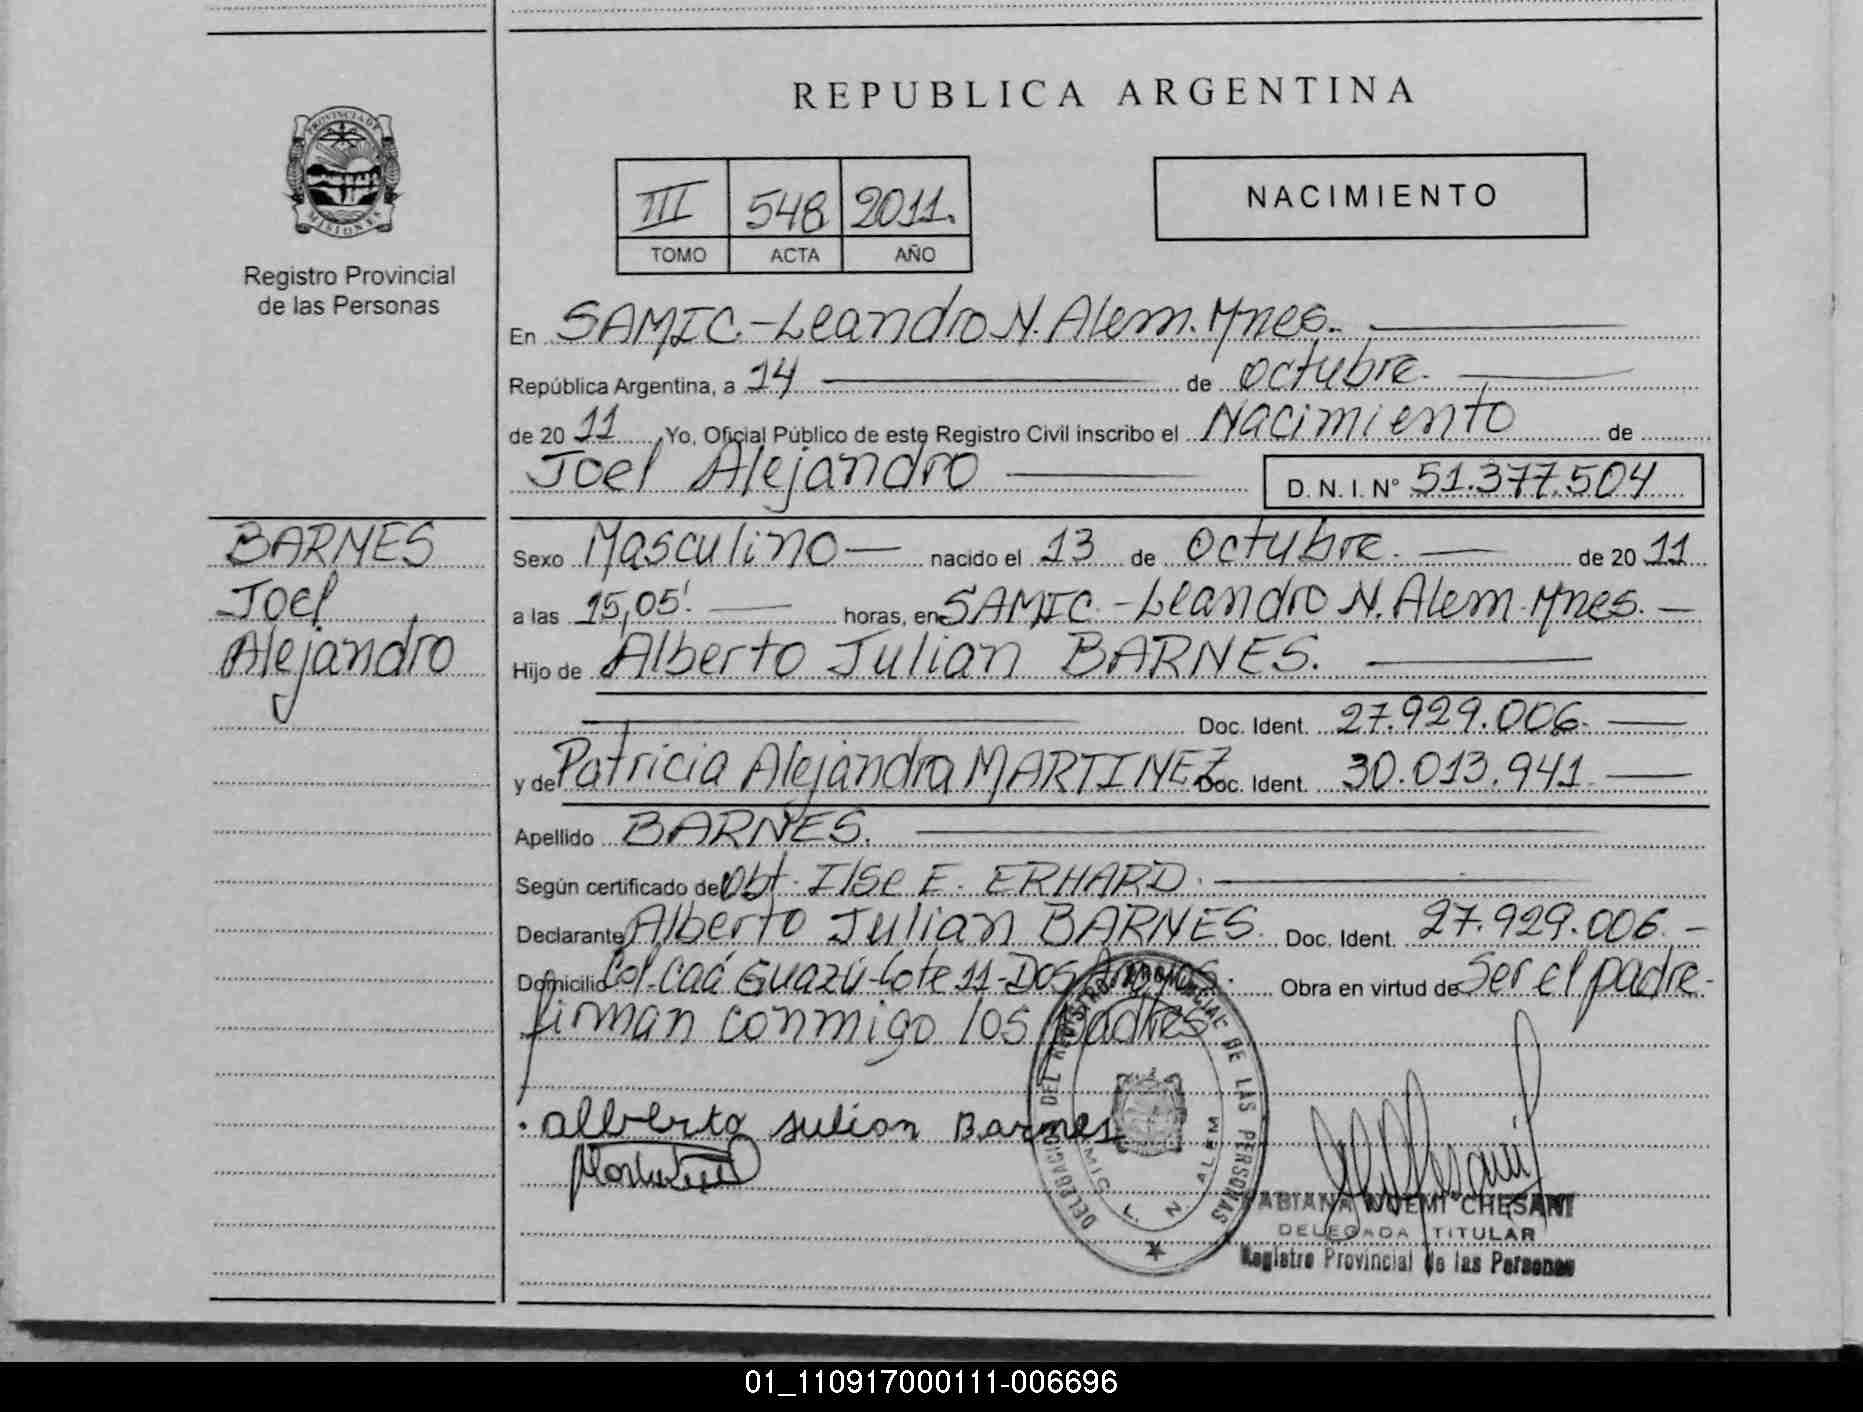 REPUBLICA ARGENTINA
PROVINCIA DE
MISIONES
Registro Provincial
de las Personas
III 548 2011.
TOMO ACTA AÑO
NACIMIENTO
En SAMIC.-Leandro N. Alem. Mnes.
República Argentina, a 14 de octubre.
de 20 11 Yo, Oficial Público de este Registro Civil inscribo el Nacimiento de
Joel Alejandro D. N. I. N° 51.377.504
BARNES
Joel
Alejandro
Sexo Masculino nacido el 13 de Octubre. de 20 11
a las 15,05'. horas, en SAMIC.-Leandro N. Alem. Mnes.
Hijo de Alberto Julian BARNES.
Doc. Ident. 27.929.006.
y de Patricia Alejandra MARTINEZ Doc. Ident. 30.013.941
Apellido BARNES.
Según certificado de Obt. Ilse E. ERHARD.
Declarante Alberto Julian BARNES. Doc. Ident. 27.929.006.-
Domicilio Col. Caá Guazú-Lote 11-Dos Arroyos. Obra en virtud de Ser el padre-
firman conmigo los Padres
alberto julian Barnes
DELEGACION DEL REGISTRO PROVINCIAL DE LAS PERSONAS
L. N. ALEM
FABIANA NOEMI CHESANI
DELEGADA TITULAR
Registro Provincial de las Personas
01_110917000111-006696